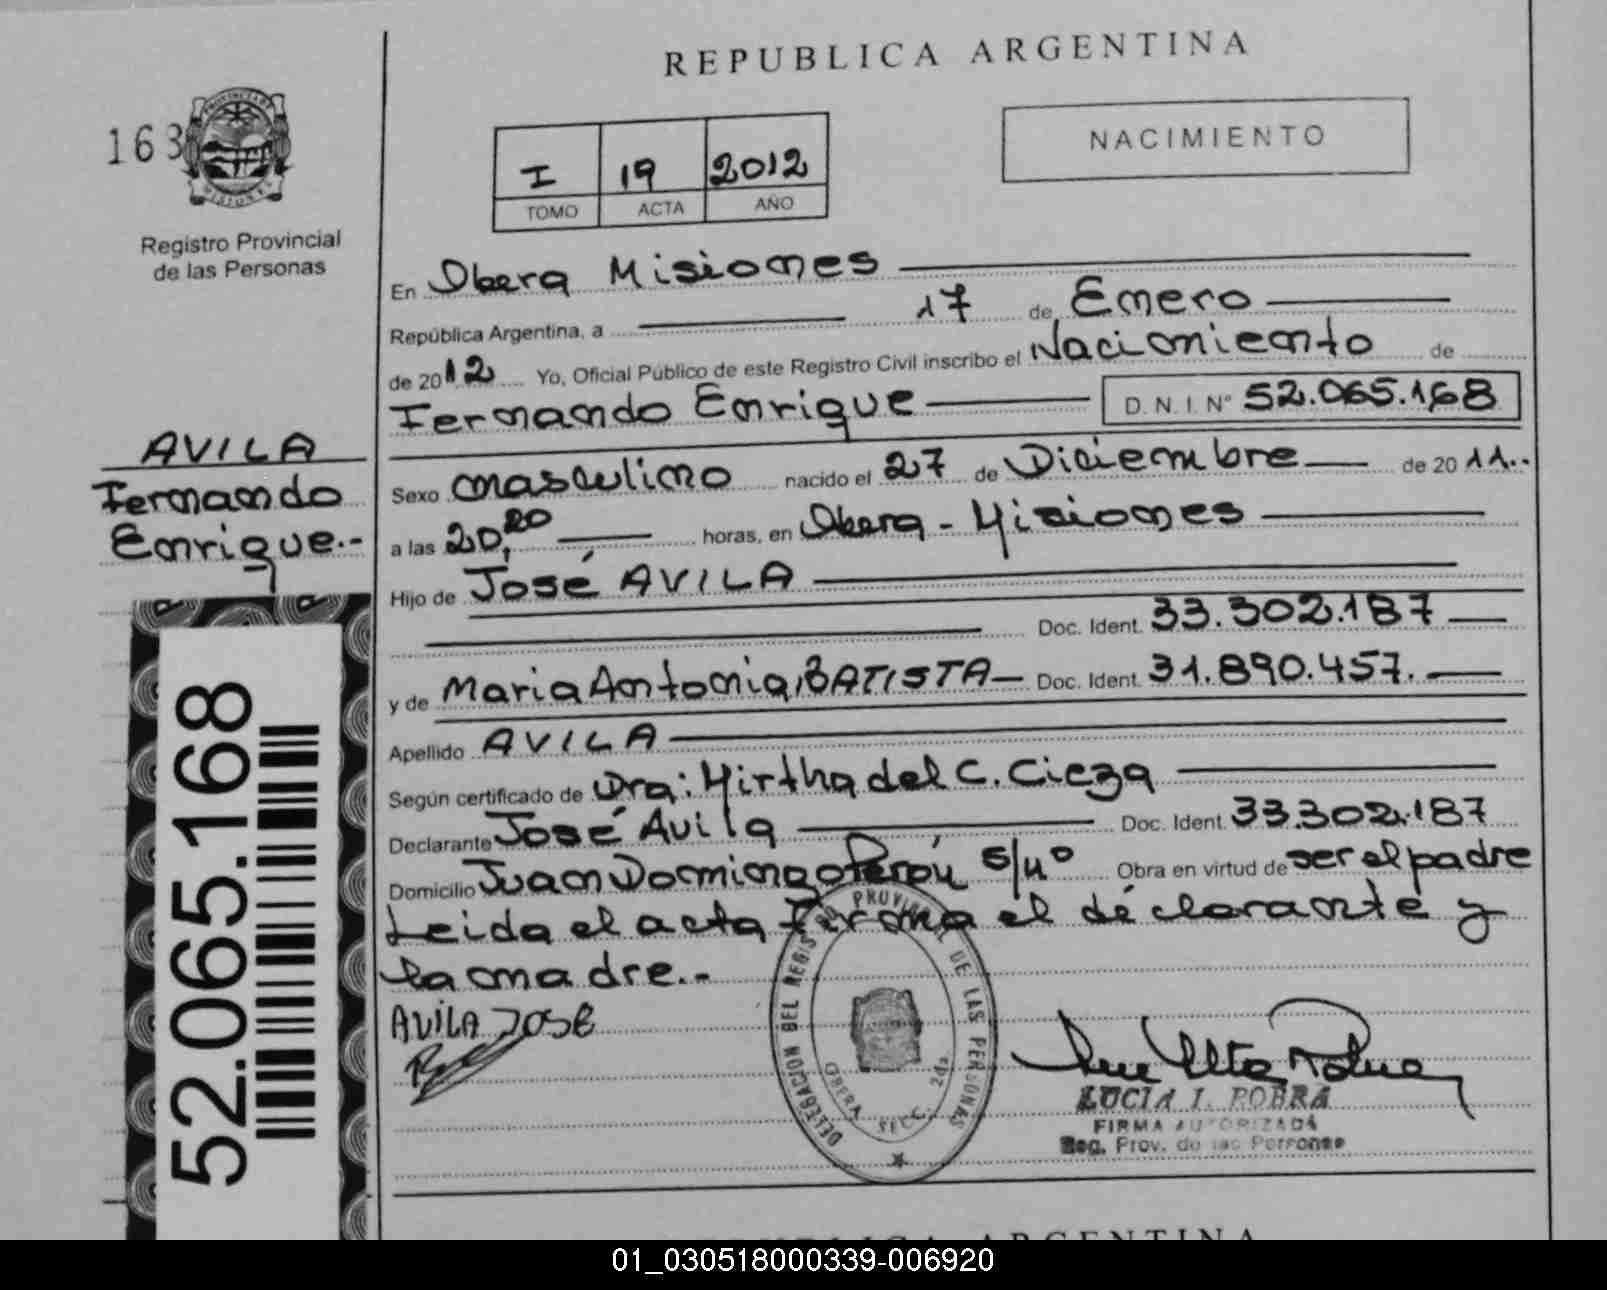 REPUBLICA ARGENTINA
163
PROVINCIA DE
MISIONES
Registro Provincial
de las Personas
I 19 2012
TOMO ACTA AÑO
NACIMIENTO
En Obera Misiones
República Argentina, a 17 de Enero
de 2012 Yo, Oficial Público de este Registro Civil inscribo el Nacimiento de
Fernando Enrique D. N. I. N° 52.065.168
AVILA
Fernando
Enrique.-
Sexo masculino nacido el 27 de Diciembre de 2011..
a las 20,20 horas, en Obera - Misiones
Hijo de José AVILA
Doc. Ident. 33.302.187
y de Maria Antonia, BATISTA Doc. Ident. 31.890.457.
Apellido AVILA
Según certificado de Dra: Mirtha del C. Cieza
Declarante José Avila Doc. Ident. 33.302.187
Domicilio Juan Domingo Perón S/nº Obra en virtud de ser el padre
Leida el acta Firma el declarante y
la madre.-
AVILA JOSE
DELEGACION DEL REGISTRO PROVINCIAL DE LAS PERSONAS
OBERA SECC. 2da
LUCIA I. POBRA
FIRMA AUTORIZADA
Reg. Prov. de las Personas
52.065.168
REPUBLICA ARGENTINA
01_030518000339-006920